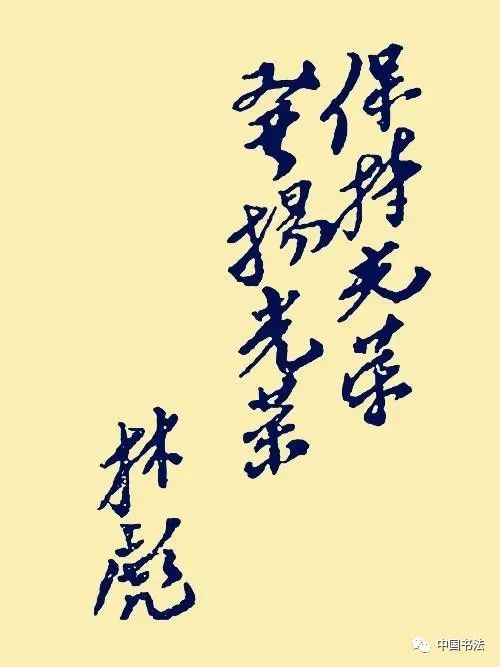 保持光荣
發揚光荣
林彪
中国书法